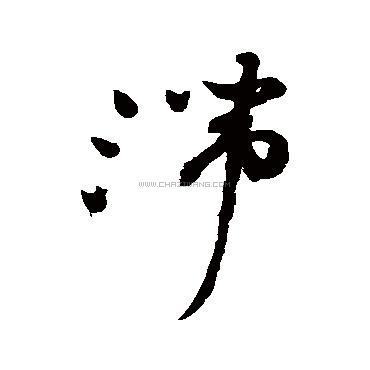 滯
WWW.CHAZIWANG.COM